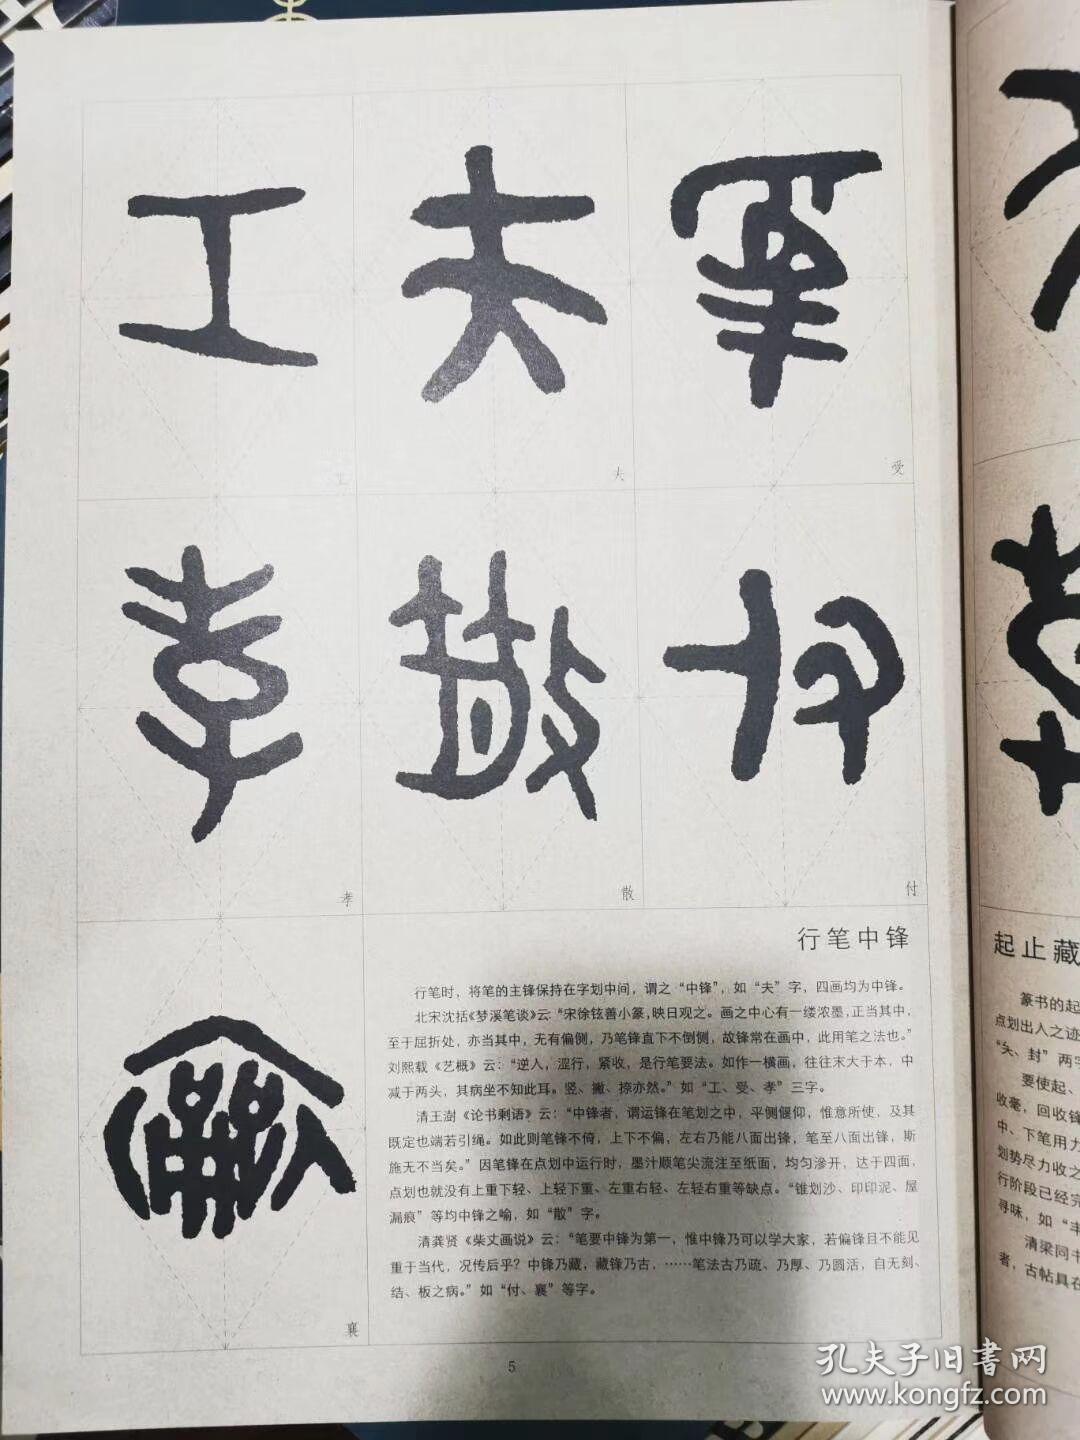 工
夫
受
孝
散
付
襄
行笔中锋
行笔时，将笔的主锋保持在字划中间，谓之“中锋”，如“夫”字，四画均为中锋。
北宋沈括《梦溪笔谈》云：“宋徐铉善小篆，映日观之。画之中心有一缕浓墨，正当其中，
至于屈折处，亦当其中，无有偏侧，乃笔锋直下不倒侧，故锋常在画中，此用笔之法也。”
刘熙载《艺概》云：“逆入，涩行，紧收，是行笔要法。如作一横画，往往末大于本，中
减于两头，其病坐不知此耳。竖、撇、捺亦然。”如“工、受、孝”三字。
清王澍《论书剩语》云：“中锋者，谓运锋在笔划之中，平侧偃仰，惟意所使，及其
既定也端若引绳。如此则笔锋不倚，上下不偏，左右乃能八面出锋，笔至八面出锋，斯
施无不当矣。”因笔锋在点划中运行时，墨汁顺笔尖流注至纸面，均匀渗开，达于四面，
点划也就没有上重下轻、上轻下重、左重右轻、左轻右重等缺点。“锥划沙、印印泥、屋
漏痕”等均中锋之喻，如“散”字。
清龚贤《柴丈画说》云：“笔要中锋为第一，惟中锋乃可以学大家，若偏锋且不能见
重于当代，况传后乎？中锋乃藏，藏锋乃古，……笔法古乃疏、乃厚、乃圆活，自无刻、
结、板之病。”如“付、襄”等字。
5
起止藏
篆书的起
点划出入之迹
“矢、封”两字
要使起、
收毫，回收锋
中、下笔用力
划势尽力收之
行阶段已经完
寻味，如“丰
清梁同书
者，古帖具在
孔夫子旧书网
www.kongfz.com